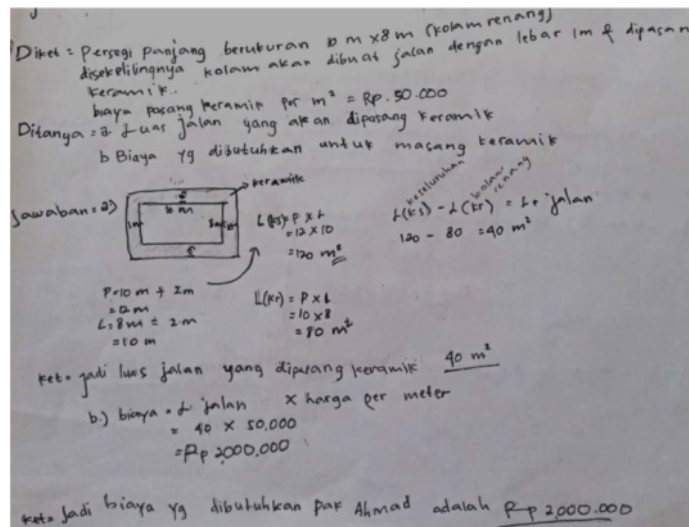 Diket = Persegi panjang berukuran 10 m x 8 m (kolam renang)
disekelilingnya kolam akan dibuat jalan dengan lebar 1m & dipasan
keramik.
biaya pasang keramik per m² = Rp. 50.000
Ditanya = a. Luas jalan yang akan dipasang keramik
b Biaya yg dibutuhkan untuk masang keramik
Jawaban = a)
keramik
10 m
1m
P=10 m + 2m
= 12 m
L=8m = 2m
= 10 m
L(ks) = P x L
= 12 x 10
= 120 m²
L(kr) = P x L
= 10 x 8
= 80 m²
keseluruhan
kolam renang
L(ks) - L(kr) = L. jalan
120 - 80 = 40 m²
ket = jadi luas jalan yang dipasang keramik 40 m²
b.) biaya = L jalan x harga per meter
= 40 x 50,000
= Rp 2000,000
ket = Jadi biaya yg dibutuhkan pak Ahmad adalah Rp 2,000.000